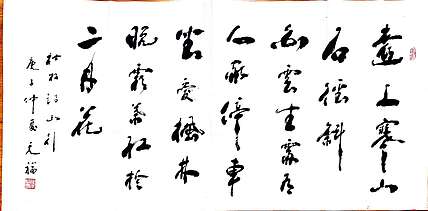 遠上寒山
石徑斜
白雲生處有
人家停車
坐愛楓林
晚霜葉紅於
二月花
杜牧詩山行
庚子仲夏元